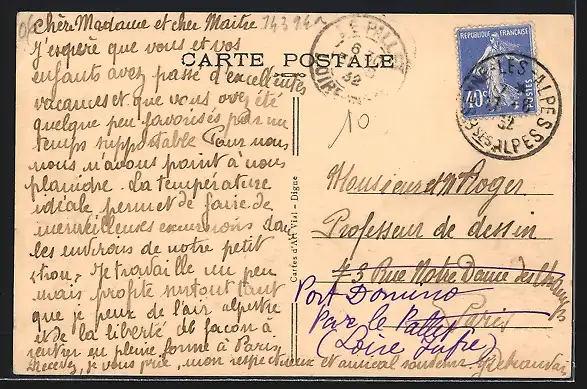 Chère Madame et cher Maître
J'espère que vous et vos
enfants avez passé d'excellentes
vacances et que vous avez été
quelque peu favorisés par un
temps supportable Pour nous
nous n'avons point à nous
plaindre. La température
idéale permet de faire de
merveilleuses excursions dans
les environs de notre petit
trou. Je travaille un peu
mais profite surtout tant
que je peux de l'air alpestre
et de la liberté de façon à
rentrer en pleine forme à Paris
Recevez, je vous prie, mon respectueux et amical souvenir
CARTE POSTALE
LE PALLET
6
32
LOIRE
10
REPUBLIQUE FRANÇAISE
40c
POSTES
LES ALPES
32
BSES ALPES
Cartes d'Art Vial - Digne
Monsieur et M Roger
Professeur de dessin
43 Rue Notre Dame des Champs
Paris
Port Domino
par le Pallet
(Loire Infre)